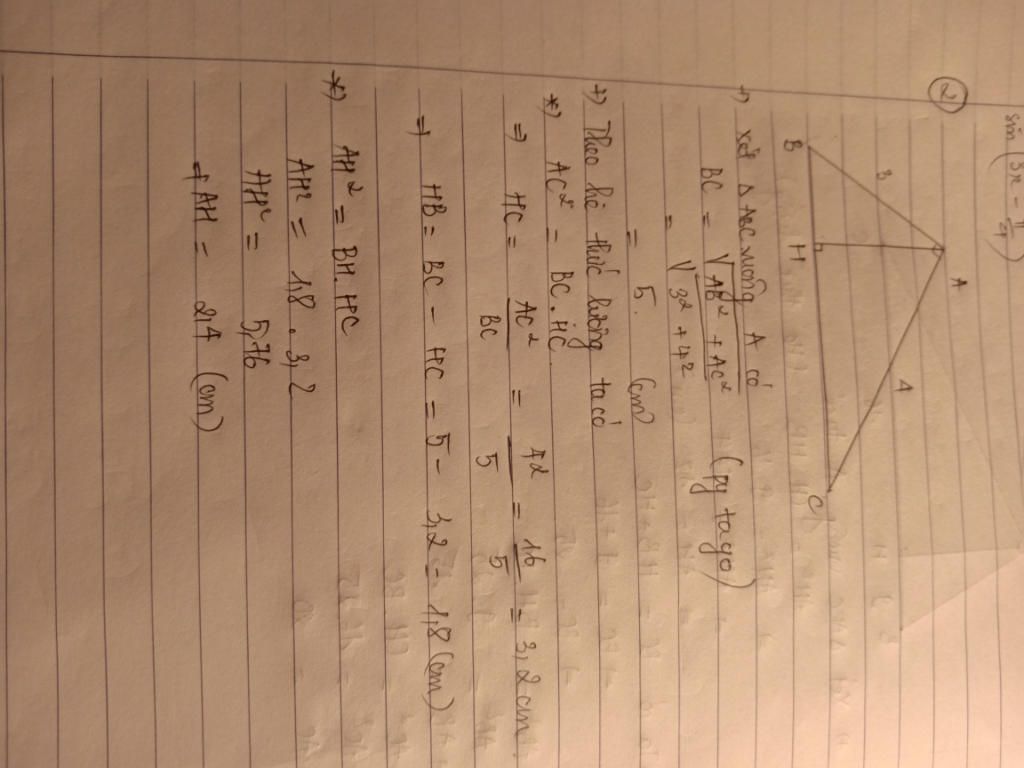 sin (3x - π/4)
②
A
3
4
B
H
C
+) xét Δ ABC vuông A có
BC = √AB² + AC² (py tago)
= √3² + 4²
= 5 (cm)
+) Theo hệ thức lượng ta có
*) AC² = BC . HC
=) HC = AC²/BC = 4²/5 = 16/5 = 3,2 cm
=) HB = BC - HC = 5 - 3,2 = 1,8 (cm)
*) AH² = BH . HC
AH² = 1,8 . 3,2
AH² = 5,76
=) AH = 2,4 (cm)